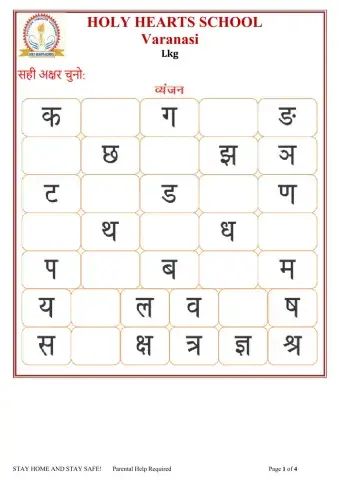 HOLY HEARTS SCHOOL
Varanasi
Lkg
सही अक्षर चुनो:
व्यंजन
क ग ङ
छ झ ञ
ट ड ण
थ ध
प ब म
य ल व ष
स क्ष त्र ज्ञ श्र
STAY HOME AND STAY SAFE! Parental Help Required Page 1 of 4